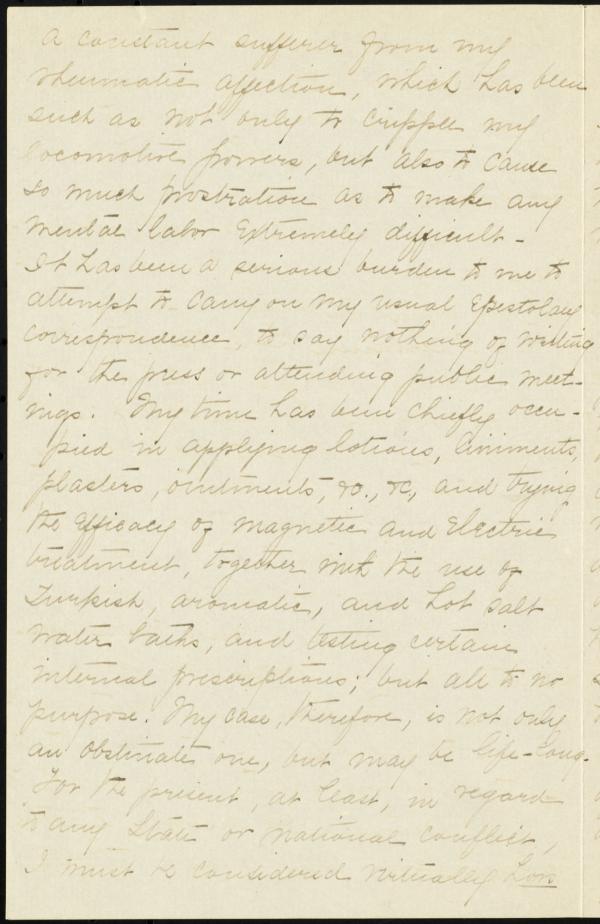 a constant sufferer from my
rheumatic affection, which has been
such as not only to cripple my
locomotive powers, but also to cause
so much prostration as to make any
mental labor extremely difficult -
It has been a serious burden to me to
attempt to carry on my usual epistolary
correspondence, to say nothing of writing
for the press or attending public meet-
ings. My time has been chiefly occu-
pied in applying lotions, liniments,
plasters, ointments, &c., &c, and trying
the efficacy of magnetic and electric
treatment, together with the use of
Turkish, aromatic, and hot salt
water baths, and testing certain
internal prescriptions; but all to no
purpose. My case, therefore, is not only
an obstinate one, but may be life-long.
For the present, at least, in regard
to any State or national conflict,
I must be considered virtually hors